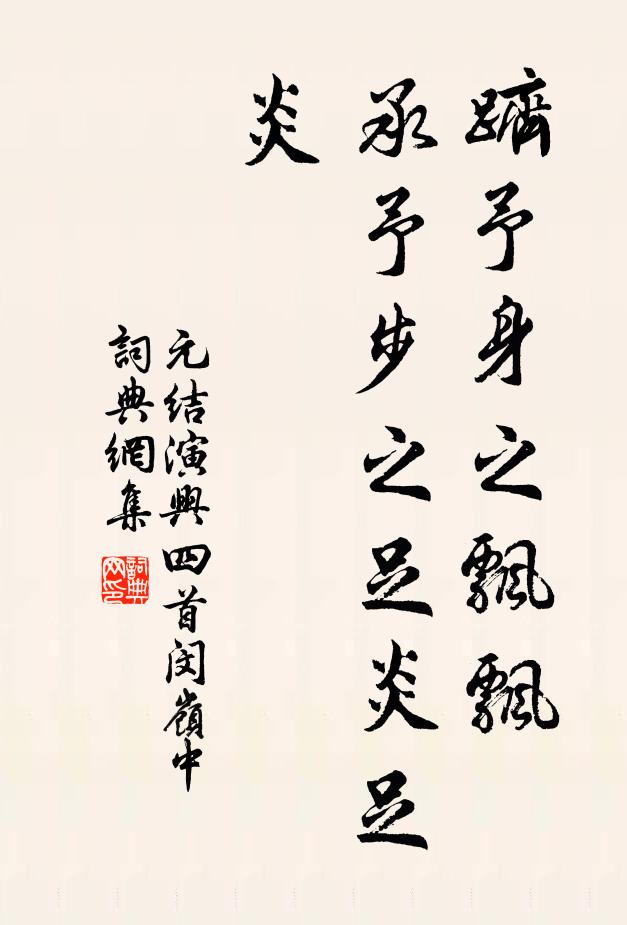 躋予身之飄飄
承予步之足炎足
炎
元結演興四首閔嶺中
詞典網集
詞典
网印